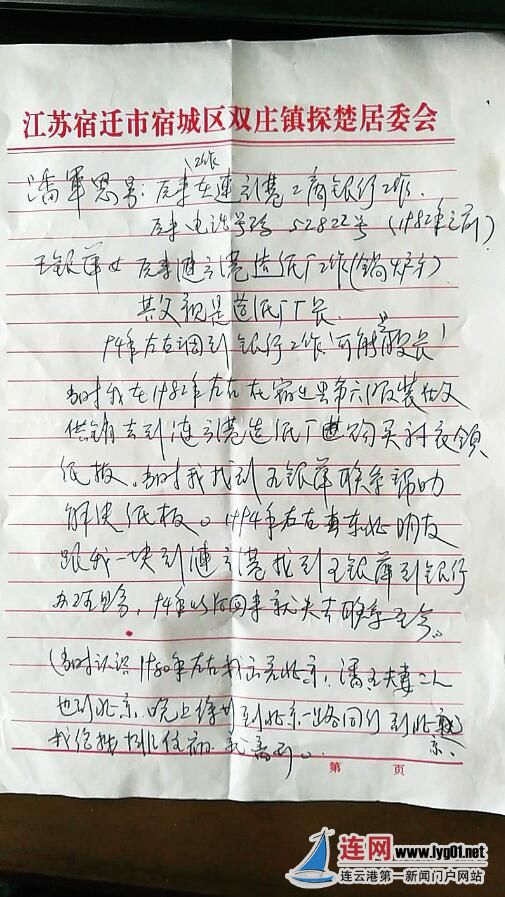 江苏宿迁市宿城区双庄镇探楚居委会
工作
潘军 男：原来在连云港工商银行工作．
原来电话号码 52822号（1982年之前）
王银萍 女 原来连云港造纸厂工作（锅炉）
其父亲是造纸厂厂长．
94年左右调到银行工作可能
当时我在1982年左右在宿迁县第六服装厂
供销去到连云港造纸厂购买衬衣领
纸板．当时我找到王银萍联系帮助
解决纸板。1994年左右东北朋友
跟我一块到连云港找到王银萍到银行
办理业务，94年以后回来就失去联系至今。
（当时认识1980年左右我出差北京，潘王夫妻二人
也到北京．晚上徐州到北京一路同行到北京．
我给他 住宿．我
第 页
连网 www.lyg01.net
连云港第一新闻门户网站